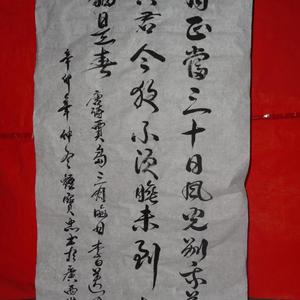 月正當三十日風光別我苦
共君今夜不須睡未到
猶是春 唐詩賈島三月晦日
辛卯年仲冬 書於廣西